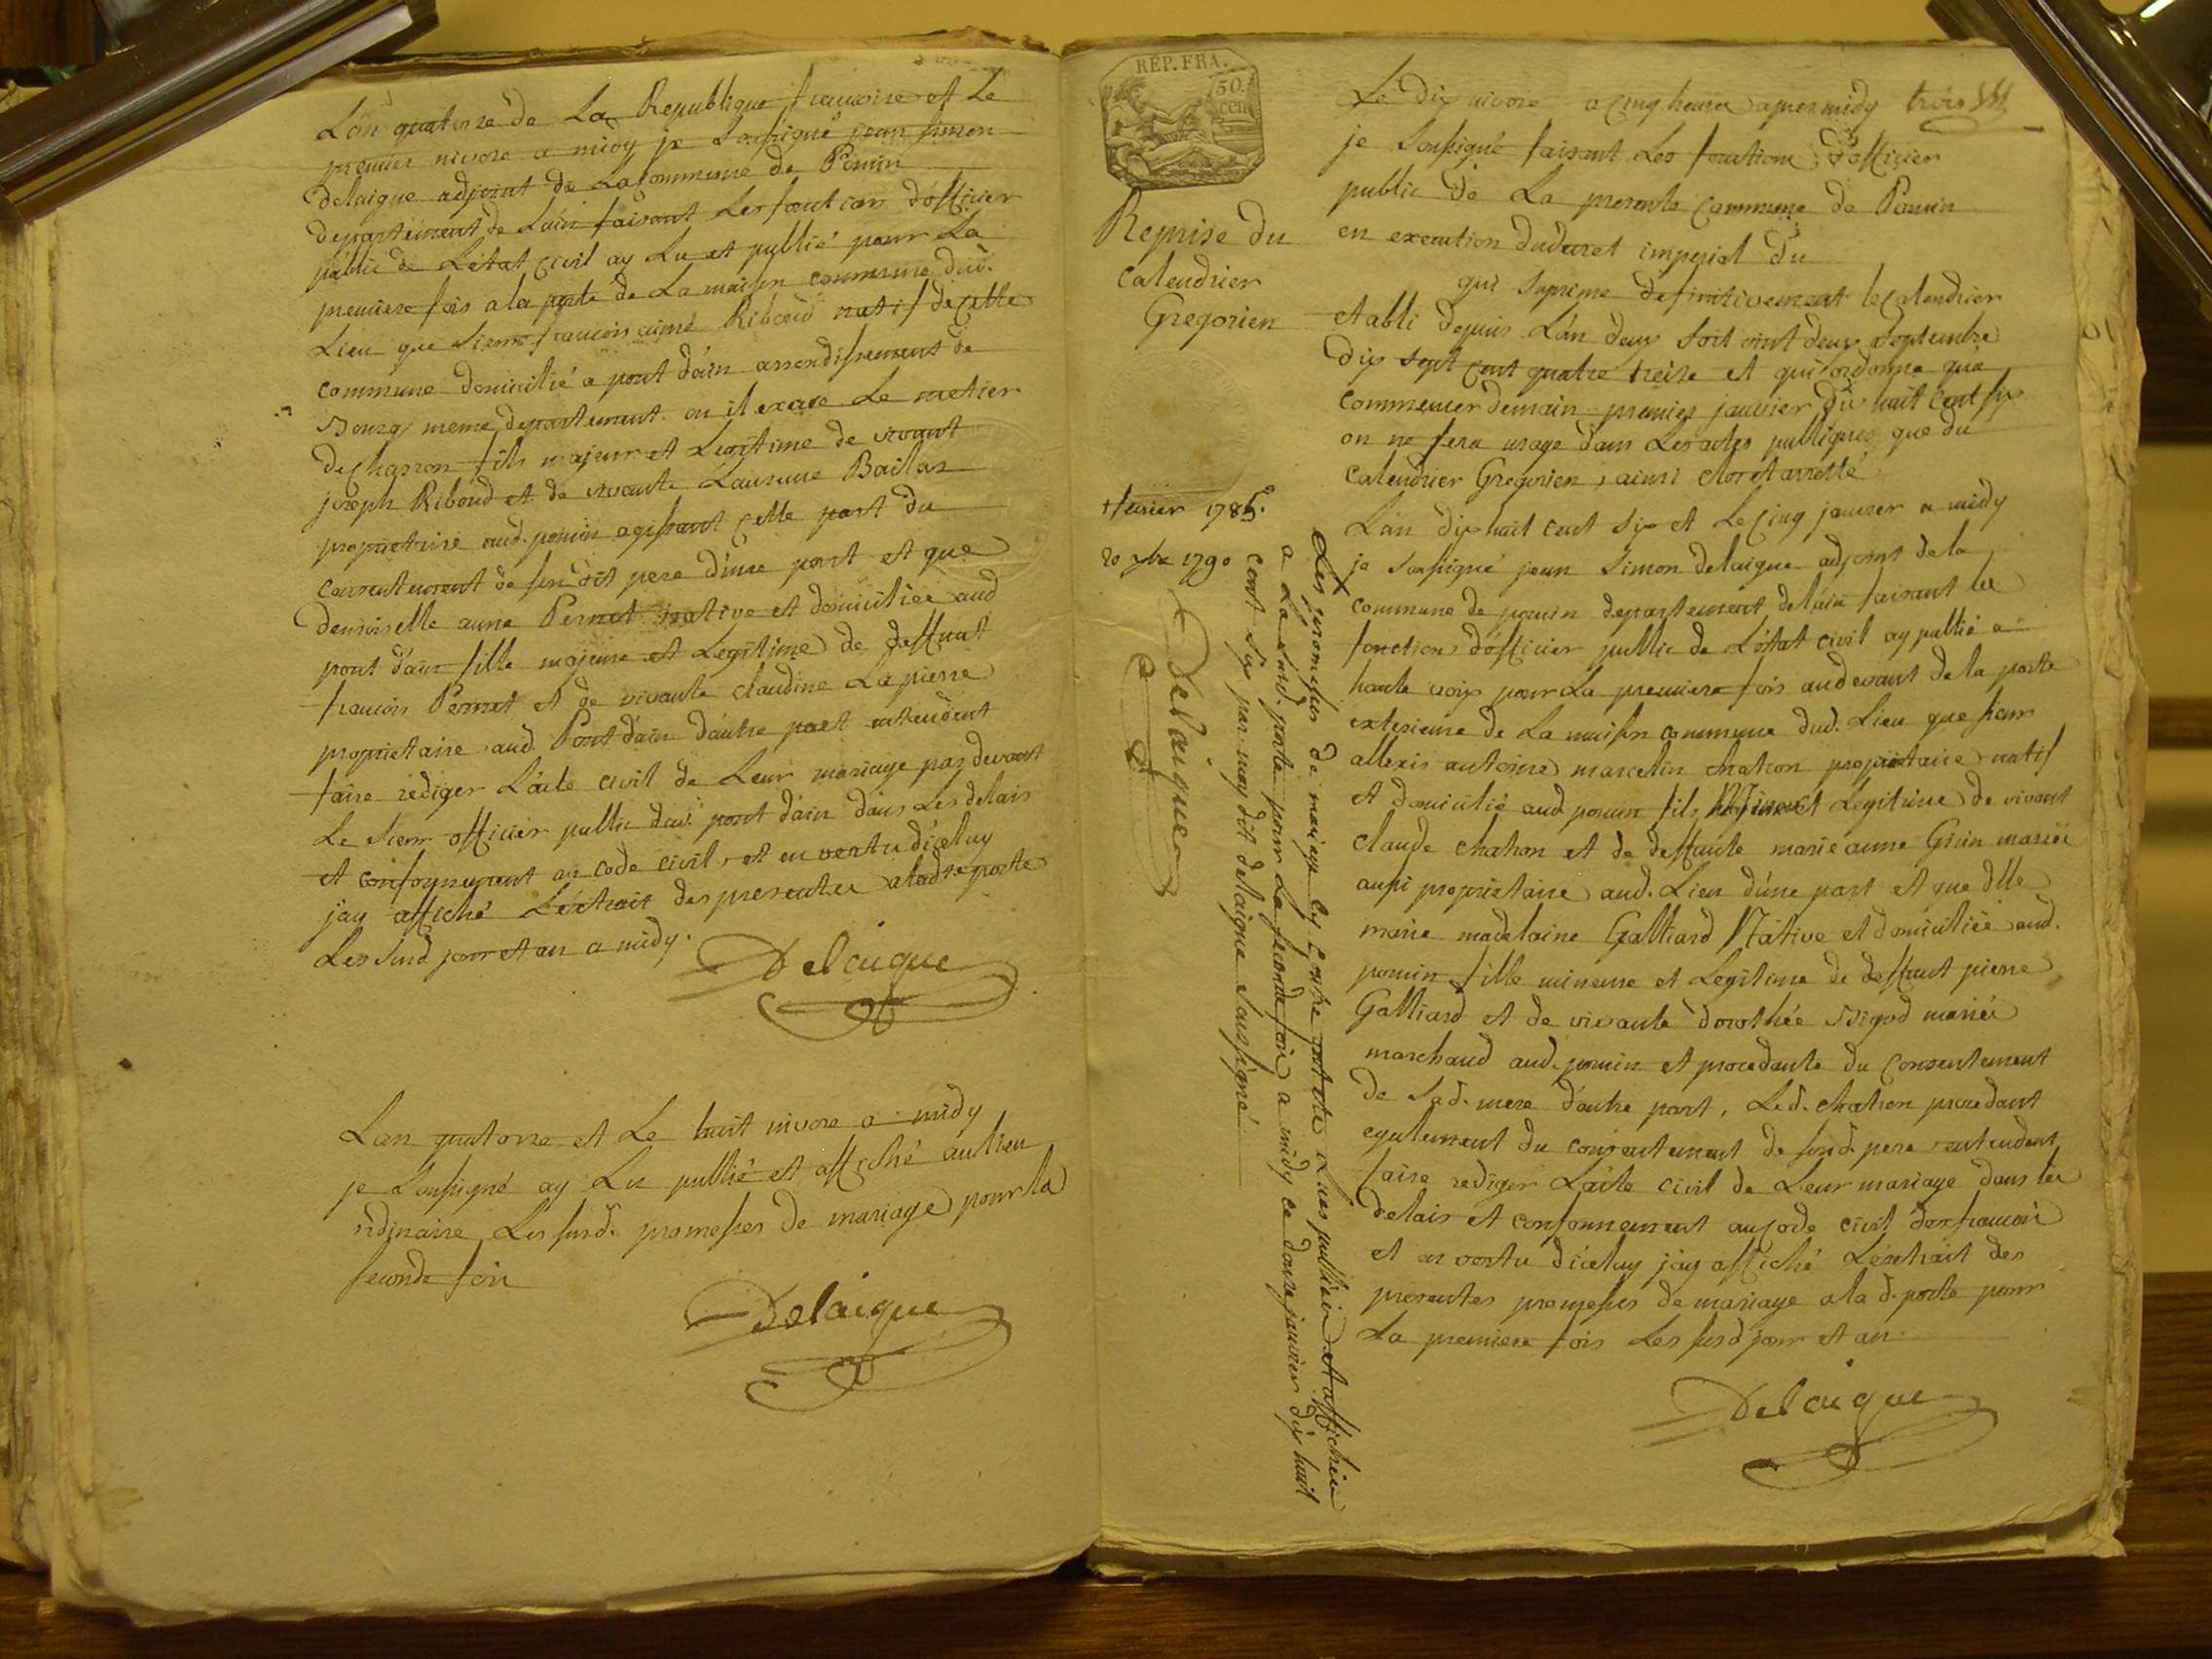 L'an quatorze de La Republique francoise et Le
premier nivose a midy je Soussigné jean simon
delaigue adjoint de La Commune de Poncin
departement de L'ain faisant Les fonctions d'officier
public de L'état Civil ay Lu et publié pour La
premiere fois a la porte de La maison commune dud.
Lieu que Sieur francois aimé Riboud natif de Cette
Commune domicilié a pont d'ain arrondissement de
Bourg meme departement ou il exerce Le metier
de Charron fils majeur et Legitime de vivant
joseph Riboud et de vivante Laurence
propriétaire aud. poncin agissant Cette part du
Consentement de son dit pere d'une part et que
demoiselle anne Pernet native et domiciliée aud
pont d'ain fille majeure et Legitime de deffunt
francois Pernet et de vivante claudine Lapierre
propriétaire aud. Pont d'ain d'autre part entendent
faire rédiger L'acte civil de Leur mariage par devant
Le Sieur officier public dud. pont d'ain dans Les delais
et conformement au code civil, et en vertu d'iceluy
j'ay affiché L'extrait des presentes a lad.te porte
Les susd jour et an a midy.
Delaigue
L'an quatorze et Le huit nivose a midy
je Soussigné ay Lu publié et affiché au lieu
ordinaire Les susd. promesses de mariage pour la
seconde fois
Delaigue
REP. FRA.
50.
cen
Reprise du
Calendrier
Gregorien
fevrier 1785.
20 1790
Les promesses de mariage cy contre ont été Lues publiées et affichées
a La susd. porte pour La seconde fois a midy ce douze janvier dix huit
Cent Six par moy dit delaigue Soussigné
Delaigue
Le dix nivose a Cinq heures apres midy trois
je Soussigné faisant Les fonctions d'officier
public de La presente Commune de Poncin
en execution du decret imperial du
qui suprime definitivement le Calendrier
etabli depuis L'an deux soit vint deux Septembre
dix sept Cent quatre treize et qui ordonne qu'a
Commencer demain premier janvier dix huit Cent six
on ne fera usage dans Les actes publiques que du
Calendrier Gregorien, ainsi clos et arretté
L'an dix huit cent six et Le Cinq janvier a midy
je Soussigné jean Simon delaigue adjoint de la
commune de poncin departement de l'ain faisant les
fonctions d'officier public de L'état civil ay publié a
haute voix pour La premiere fois au devant de la porte
exterieure de La maison commune dud. Lieu que sieur
allexis antoine marcelin chahon propriétaire natif
et domicilié aud poncin fils et Legitime de vivant
claude chahon et de deffunte marie anne Girin mariés
aussi propriétaire aud. Lieu d'une part et que dlle
marie madelaine Galliard Native et domiciliée aud.
poncin fille mineure et Legitime de deffunt pierre
Galliard et de vivante dorothée Bigod mariés
marchand aud. poncin et procedante du Consentement
de sad. mere d'autre part, Led. chahon procedant
egalement du consentement de sond. pere entendent
faire rediger L'acte civil de Leur mariage dans les
delais et conformement au code civil des francois
et en vertu d'iceluy j'ay affiché L'extrait des
presentes promesses de mariage a la d. porte pour
La premiere fois Les susd jour et an
Delaigue